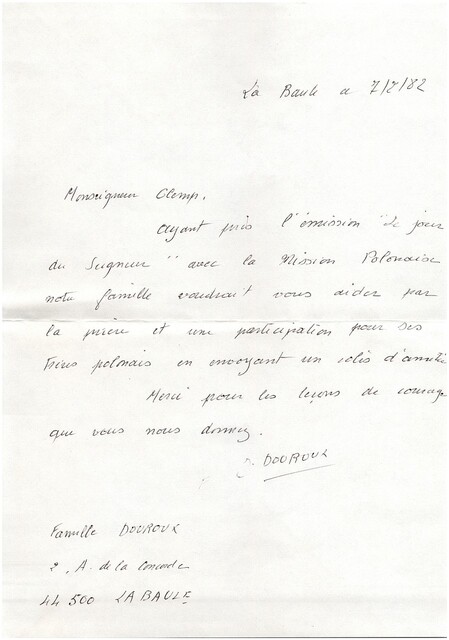 La Baule le 7/2/82
Monseigneur Glemp,
Ayant pris l'émission "Le jour
du Seigneur" avec la Mission Polonaise
notre famille voudrait vous aider par
la prière et une participation pour ses
frères polonais en envoyant un colis d'amitié
Merci pour les leçons de courage
que vous nous donnez.
DOUROUX
Famille DOUROUX
2, A. de la Concorde
44 500 LA BAULE